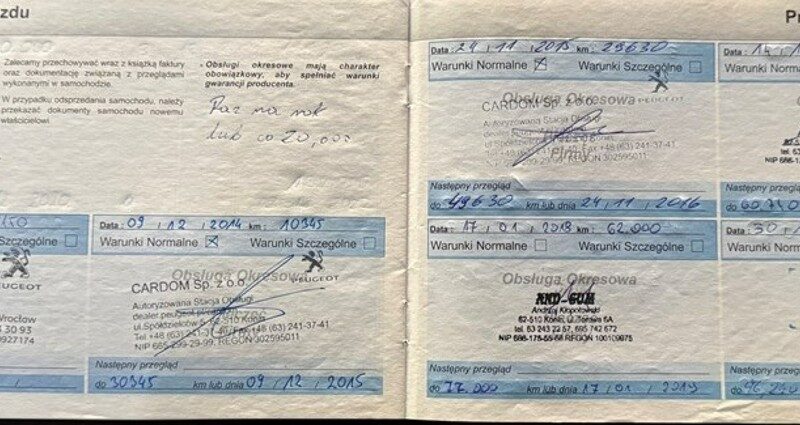 zdu
Zalecamy przechowywać wraz z książką faktury
oraz dokumentację związaną z przeglądami
wykonanymi w samochodzie.
W przypadku odsprzedania samochodu, należy
przekazać dokumenty samochodu nowemu
właścicielowi.
- Obsługi okresowe mają charakter
obowiązkowy, aby spełniać warunki
gwarancji producenta.
Raz na rok
lub co 20,000
Szczególne
PEUGEOT
Wrocław
Data: 09 / 12 / 2014 km: 10345
Warunki Normalne ☒ Warunki Szczególne ☐
Obsługa Okresowa
PEUGEOT
CARDOM Sp. z o.o.
Autoryzowana Stacja Obsługi
dealer peugeot
ul. Spółdzielców 62-510 Konin
Tel +48 (63) 241-37-41
NIP 665-299-29-99, REGON 302595011
Następny przegląd
do 30345 km lub dnia 09 / 12 / 2015
P
Data: 24 / 11 / 2015 km: 29630
Warunki Normalne ☒ Warunki Szczególne ☐
Obsługa Okresowa
PEUGEOT
CARDOM Sp. z o.o.
Autoryzowana Stacja Obsługi
dealer
ul. Spółdzielców
Fax +48 (63) 241-37-41
REGON 302595011
Następny przegląd
do 49630 km lub dnia 24 / 11 / 2016
Data: 17 / 01 / 2018 km: 62.000
Warunki Normalne ☐ Warunki Szczególne ☐
Obsługa Okresowa
AND-GUM
Andrzej Kłopotowski
62-510 Konin, ul. 6A
tel. 63 243 22 57, 695 742 672
REGON
Następny przegląd
do 77.000 km lub dnia 17 / 01 / 2019
Data: 14
Warunki Norma
Następny
do 60.740
Data: 30
Warunki Norma
Następny
do